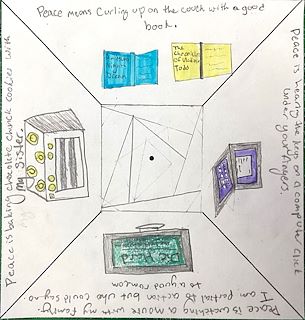 Peace means Curling up on the couch with a good
book.
The
Chronicles
of
Todd
Peace is hearing the keys on a computer click
under your fingers.
Peace is watching a movie with my family.
I am partial to action but who could say no
to a good romcom
Die Hard
Peace is baking chocolate chunck cookies with
my sister.